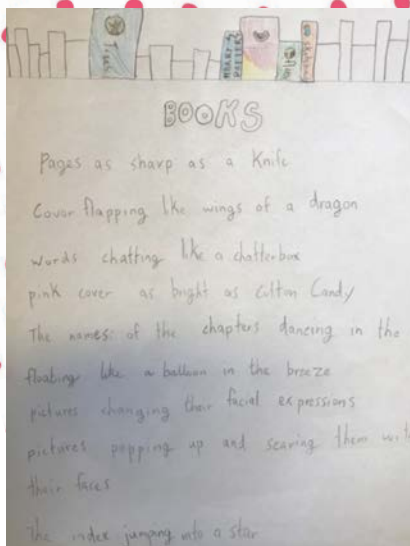 HARRY POTTER
BOOKS
Pages as sharp as a Knife
Cover flapping like wings of a dragon
words chatting like a chatterbox
pink cover as bright as Cotton Candy
The names of the chapters dancing in the
floating like a balloon in the breeze
pictures changing their facial expressions
pictures popping up and scaring them with
their faces
The index jumping into a star